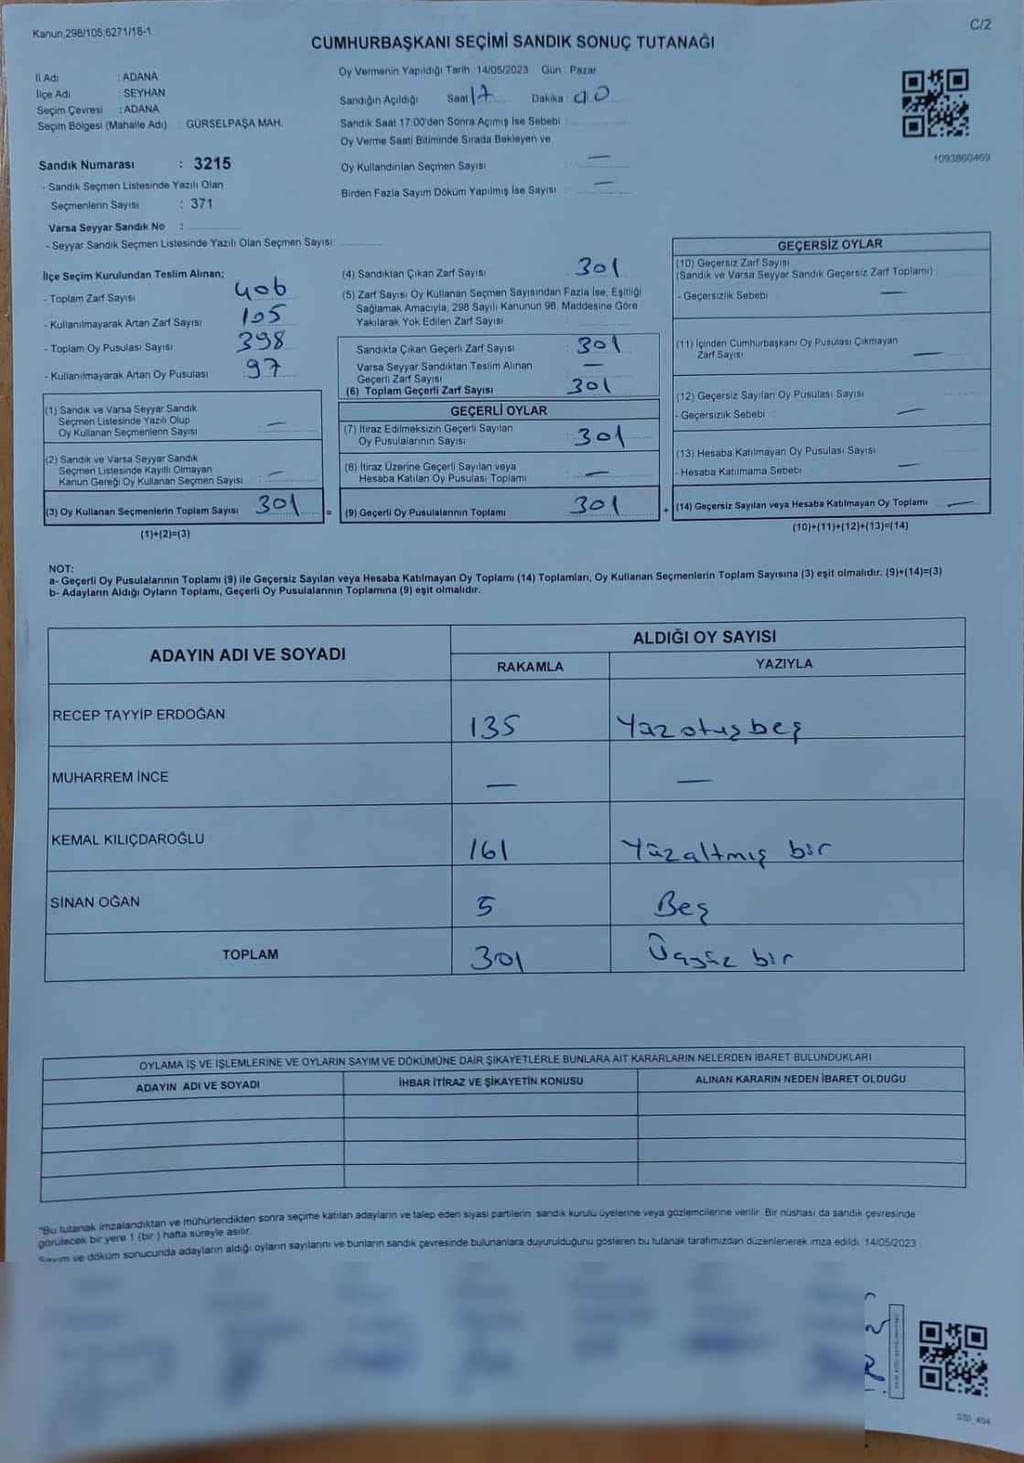 Kanun,298/105,6271/18-1
C/2
CUMHURBAŞKANI SEÇİMİ SANDIK SONUÇ TUTANAĞI
İl Adı : ADANA
İlçe Adı : SEYHAN
Seçim Çevresi : ADANA
Seçim Bölgesi (Mahalle Adı) : GÜRSELPAŞA MAH.
Sandık Numarası : 3215
- Sandık Seçmen Listesinde Yazılı Olan
Seçmenlerin Sayısı : 371
Varsa Seyyar Sandık No :
- Seyyar Sandık Seçmen Listesinde Yazılı Olan Seçmen Sayısı
Oy Vermenin Yapıldığı Tarih : 14/05/2023 Gün : Pazar
Sandığın Açıldığı Saat 17 Dakika : 00
Sandık Saat 17:00'den Sonra Açımış İse Sebebi
Oy Verme Saati Bitiminde Sırada Bekleyen ve
Oy Kullandırılan Seçmen Sayısı —
Birden Fazla Sayım Döküm Yapılmış İse Sayısı —
1093860469
İlçe Seçim Kurulundan Teslim Alınan;
- Toplam Zarf Sayısı 406
- Kullanılmayarak Artan Zarf Sayısı 105
- Toplam Oy Pusulası Sayısı 398
- Kullanılmayarak Artan Oy Pusulası 97
(1) Sandık ve Varsa Seyyar Sandık
Seçmen Listesinde Yazılı Olup
Oy Kullanan Seçmenlerin Sayısı —
(2) Sandık ve Varsa Seyyar Sandık
Seçmen Listesinde Kayıtlı Olmayan
Kanun Gereği Oy Kullanan Seçmen Sayısı —
(3) Oy Kullanan Seçmenlerin Toplam Sayısı 301 =
(1)+(2)=(3)
(4) Sandıktan Çıkan Zarf Sayısı 301
(5) Zarf Sayısı Oy Kullanan Seçmen Sayısından Fazla İse, Eşitliği
Sağlamak Amacıyla, 298 Sayılı Kanunun 98. Maddesine Göre
Yakılarak Yok Edilen Zarf Sayısı
Sandıkta Çıkan Geçerli Zarf Sayısı 301
Varsa Seyyar Sandıktan Teslim Alınan
Geçerli Zarf Sayısı —
(6) Toplam Geçerli Zarf Sayısı 301
GEÇERLİ OYLAR
(7) İtiraz Edilmeksizin Geçerli Sayılan
Oy Pusulalarının Sayısı 301
(8) İtiraz Üzerine Geçerli Sayılan veya
Hesaba Katılan Oy Pusulası Toplamı —
(9) Geçerli Oy Pusulalarının Toplamı 301 +
GEÇERSİZ OYLAR
(10) Geçersiz Zarf Sayısı
(Sandık ve Varsa Seyyar Sandık Geçersiz Zarf Toplamı)
- Geçersizlik Sebebi —
(11) İçinden Cumhurbaşkanı Oy Pusulası Çıkmayan
Zarf Sayısı —
(12) Geçersiz Sayılan Oy Pusulası Sayısı
- Geçersizlik Sebebi —
(13) Hesaba Katılmayan Oy Pusulası Sayısı
- Hesaba Katılmama Sebebi —
(14) Geçersiz Sayılan veya Hesaba Katılmayan Oy Toplamı —
(10)+(11)+(12)+(13)=(14)
NOT:
a- Geçerli Oy Pusulalarının Toplamı (9) ile Geçersiz Sayılan veya Hesaba Katılmayan Oy Toplamı (14) Toplamları, Oy Kullanan Seçmenlerin Toplam Sayısına (3) eşit olmalıdır. (9)+(14)=(3)
b- Adayların Aldığı Oyların Toplamı, Geçerli Oy Pusulalarının Toplamına (9) eşit olmalıdır.
ADAYIN ADI VE SOYADI
ALDIĞI OY SAYISI
RAKAMLA YAZIYLA
RECEP TAYYİP ERDOĞAN 135 Yüzotuzbeş
MUHARREM İNCE — —
KEMAL KILIÇDAROĞLU 161 Yüzaltmış bir
SİNAN OĞAN 5 Beş
TOPLAM 301 Üçyüz bir
OYLAMA İŞ VE İŞLEMLERİNE VE OYLARIN SAYIM VE DÖKÜMÜNE DAİR ŞİKAYETLERLE BUNLARA AİT KARARLARIN NELERDEN İBARET BULUNDUKLARI
ADAYIN ADI VE SOYADI İHBAR İTİRAZ VE ŞİKAYETİN KONUSU ALINAN KARARIN NEDEN İBARET OLDUĞU
"Bu tutanak imzalandıktan ve mühürlendikten sonra seçime katılan adayların ve talep eden siyasi partilerin sandık kurulu üyelerine veya gözlemcilerine verilir. Bir nüshası da sandık çevresinde
görülecek bir yere 1 (bir) hafta süreyle asılır.
Sayım ve döküm sonucunda adayların aldığı oyların sayılarını ve bunların sandık çevresinde bulunanlara duyurulduğunu gösteren bu tutanak tarafımızdan düzenlenerek imza edildi. 14/05/2023